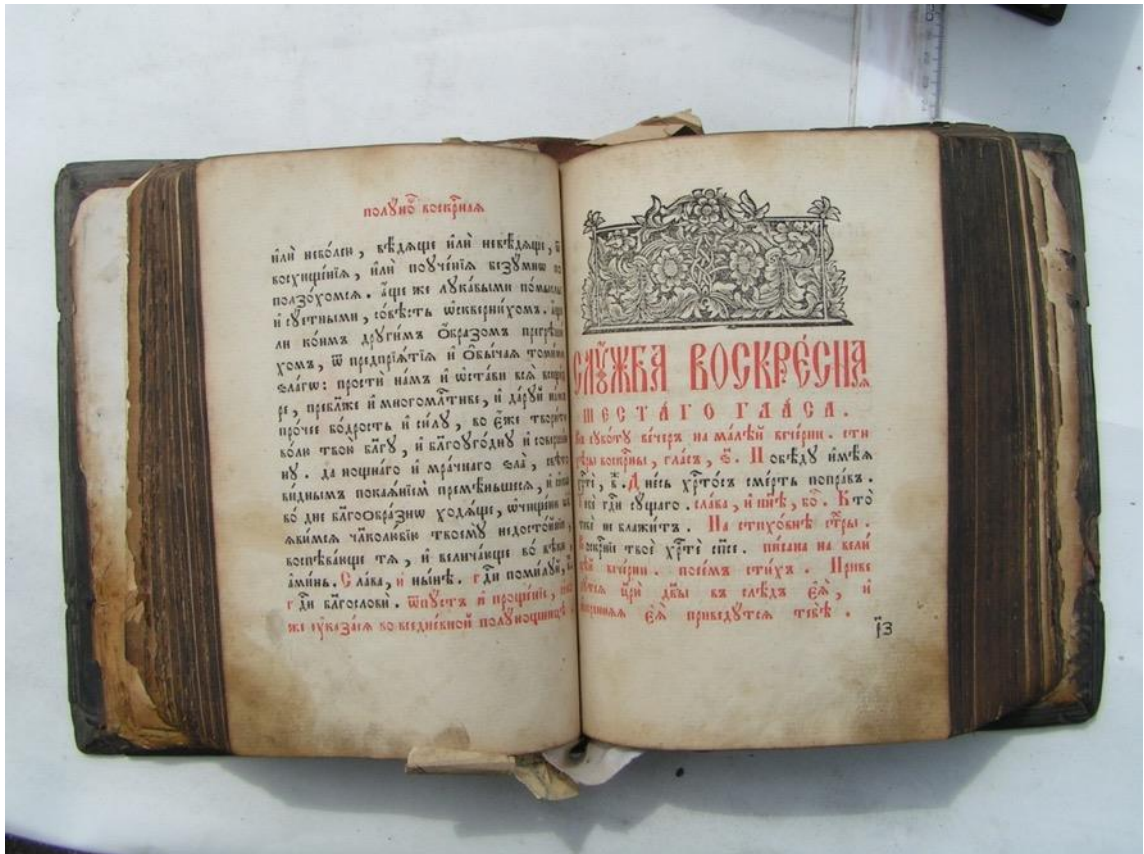 полꙋно́ⷳ воскрⷭ҇наѧ
и҆лѝ нево́лею , вѣ́дѧще и҆лѝ невѣ́дѧще , ѿ
восхище́нїѧ , и҆лѝ поꙋче́нїѧ беꙁꙋмнѡ по
полꙁо́хомсѧ . а҆́ще же лꙋка́выми по́мыслы
и҆ сꙋ́етными , со́вѣсть ѡ҆скверни́хомъ .
ли ко́имъ дрꙋги́мъ ѻ҆́браꙁомъ
хомъ , ѿ предпрїѧ́тїѧ и҆ ѻ҆бы́чаѧ
ѕла́гѡ : простѝ на́мъ и҆ ѡ҆ста́ви всѧ̀
ре , пребл҃же и҆ многомлⷭ҇тиве , и҆ да́рꙋй на́мъ
про́чее бо́дрость и҆ си́лꙋ , во є҆́же твори́ти
во́лю твою̀ бл҃гꙋ́ю , и҆ бл҃гоꙋго́днꙋ и҆
нꙋ . да нощна́го и҆ мра́чнаго ѕла̀ ,
ви́днымъ покаѧ́нїемъ премѣ́ньшесѧ , и҆
во́ дне бл҃гоѻбра́ꙁнѡ ходѧ́ще , ѡ҆чище́ни
ꙗ҆ви́мсѧ чл҃колю́бїю твоемꙋ̀ недосто́йнїи ,
воспѣва́юще тѧ̀ , и҆ велича́юще во́ вѣки ,
а҆ми́нь . Сла́ва , и҆ ны́нѣ . гдⷭ҇и поми́лꙋй ,
гдⷭ҇и бл҃гословѝ . ѿпꙋ́стъ и҆ проще́нїе ,
же ᲂу҆каꙁа́сѧ во вседне́вной полꙋно́щницѣ .
СЛꙊ́ЖБА ВОСКРЕ́СНАѦ
ШЕСТА́ГО ГЛА́СА .
Въ сꙋбо́тꙋ ве́черъ на ма́лѣй вече́рни . сти
воскр҃ны , гла́съ , ѕ҃ . Побѣ́дꙋ и҆мѣ́ѧ
хрⷭ҇тѐ , в҃ . Дне́сь хрⷭ҇то́съ сме́рть попра́въ .
гдⷭ҇и сꙋ́щаго . сла́ва , и҆ нн҃ѣ , бо́ⷢ . Кто̀
тебѐ не блажи́тъ . На стихо́внѣ ст҃ры .
Воскрⷭ҇нїе твоѐ хрⷭ҇тѐ сп҃се . пи́сана на вели́
цѣй вече́рни . пое́мъ сти́хъ . Приве
дꙋ́тсѧ цр҃ю̀ дв҃ы въ слѣ́дъ є҆ѧ̀ , и҆
и҆́скреннѧѧ є҆ѧ̀ приведꙋ́тсѧ тебѣ̀ .